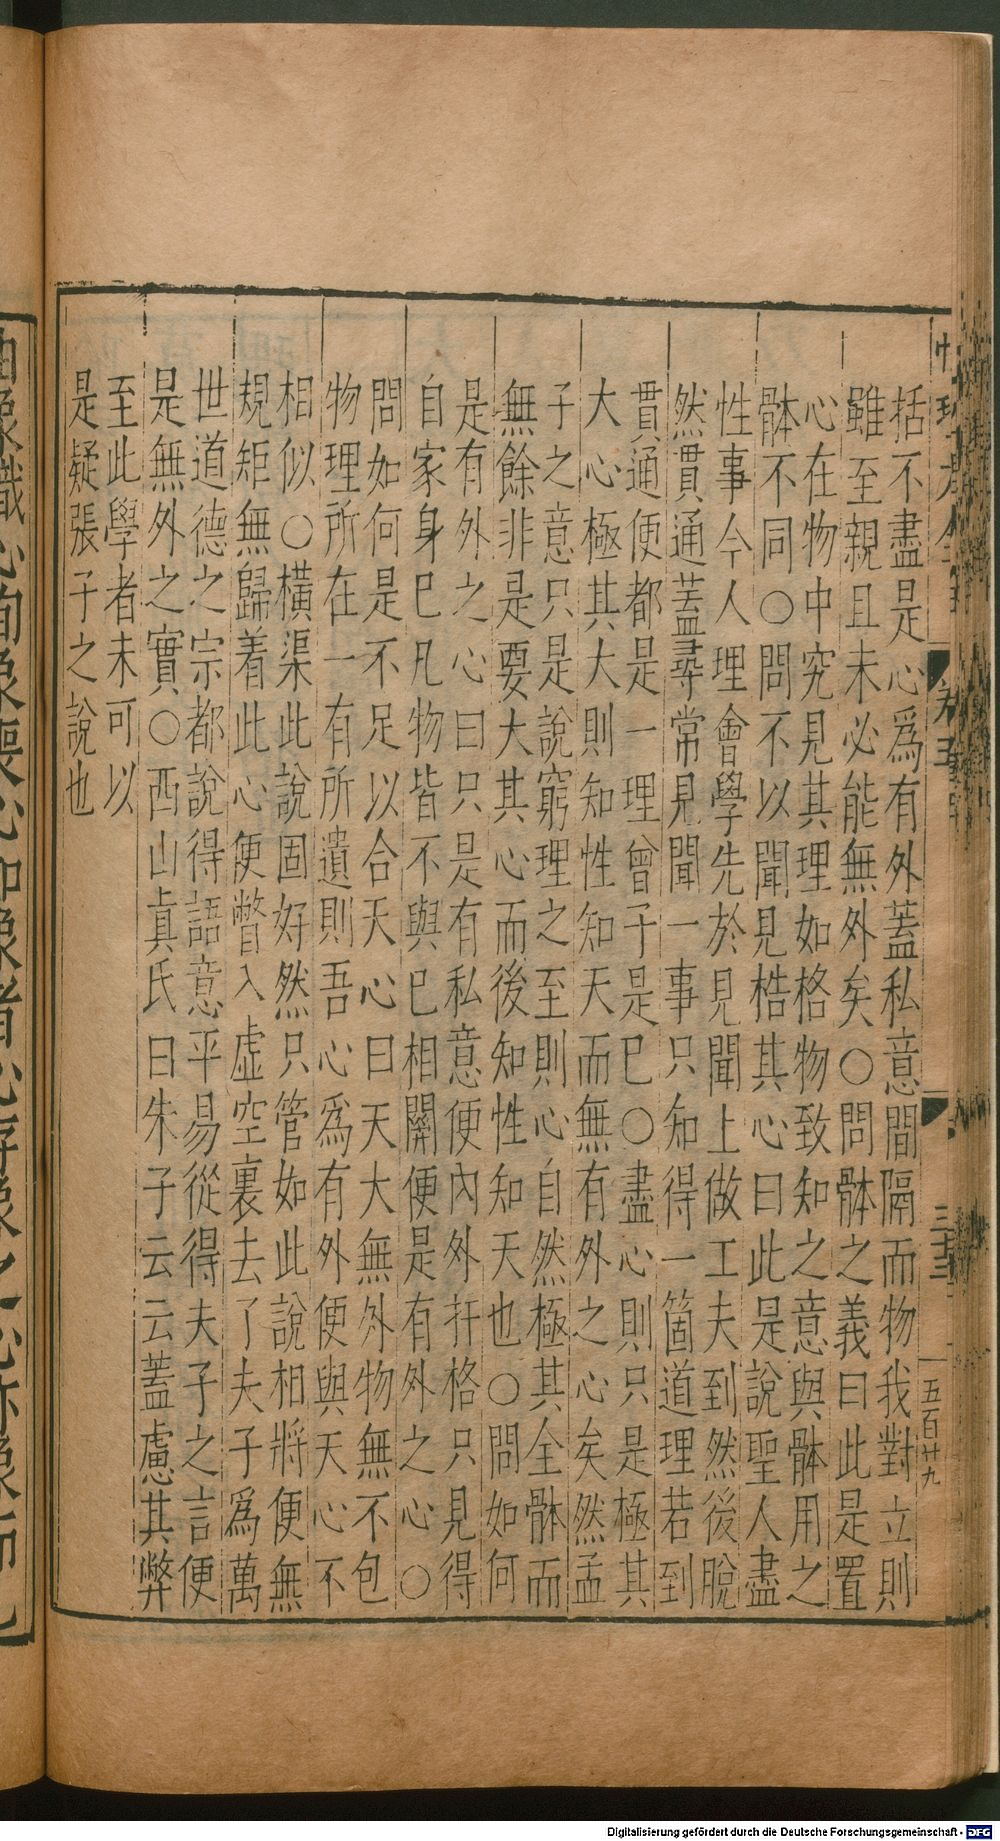 括不盡是心爲有外蓋私意間隔而物我對立則
雖至親且未必能無外矣〇問骵之義曰此是置
心在物中究見其理如格物致知之意與骵用之
骵不同〇問不以聞見梏其心曰此是說聖人盡
性事今人理會學先於見聞上做工夫到然後脫
然貫通蓋尋常見聞一事只知得一箇道理若到
貫通便都是一理曾子是已〇盡心則只是極其
大心極其大則知性知天而無有外之心矣然孟
子之意只是說窮理之至則心自然極其全骵而
無餘非是要大其心而後知性知天也〇問如何
是有外之心曰只是有私意便內外扞格只見得
自家身已凡物皆不與已相關便是有外之心〇
問如何是不足以合天心曰天大無外物無不包
物理所在一有所遺則吾心爲有外便與天心不
相似〇橫渠此說固好然只管如此說相將便無
規矩無歸着此心便瞥入虛空裏去了夫子爲萬
世道德之宗都說得語意平易從得夫子之言便
是無外之實〇西山眞氏曰朱子云云蓋慮其弊
至此學者未可以
是疑張子之說也
五百廿九
Digitalisierung gefördert durch die Deutsche Forschungsgemeinschaft - DFG